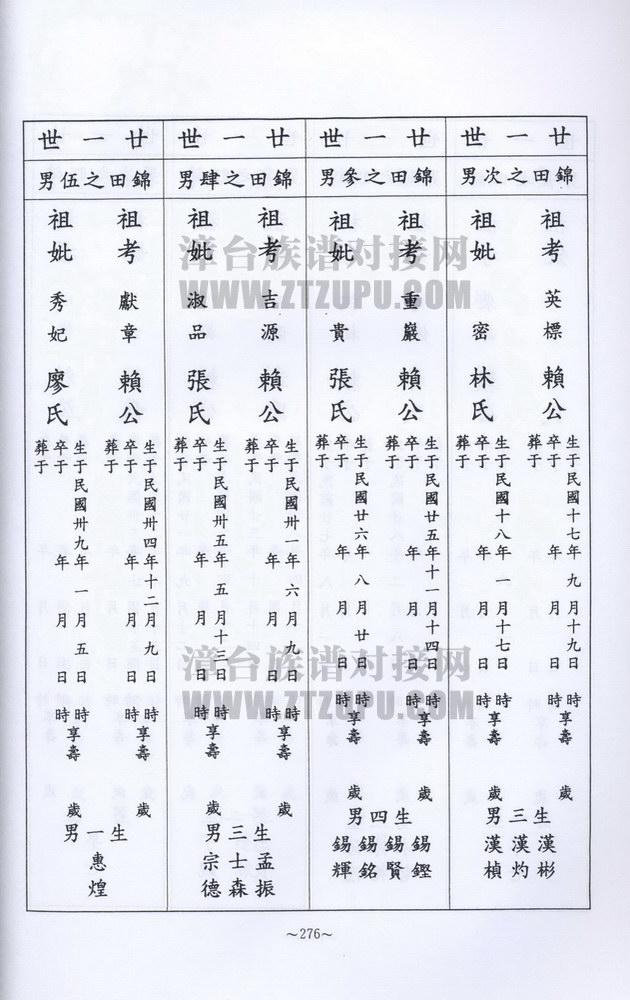 廿一世
錦田之次男
祖考 英標 賴公
生于民國十七年九月十九日 時
卒于 年 月 日 時享壽 歲
葬于
祖妣 密 林氏
生于民國十八年一月十七日 時
卒于 年 月 日 時享壽 歲
葬于
生三男
漢彬
漢灼
漢楨
廿一世
錦田之參男
祖考 重巖 賴公
生于民國廿五年十一月十四日 時
卒于 年 月 日 時享壽 歲
葬于
祖妣 貴 張氏
生于民國廿六年八月廿日 時
卒于 年 月 日 時享壽 歲
葬于
生四男
錫鏗
錫賢
錫銘
錫輝
廿一世
錦田之肆男
祖考 吉源 賴公
生于民國卅一年六月九日 時
卒于 年 月 日 時享壽 歲
葬于
祖妣 淑品 張氏
生于民國卅五年五月十三日 時
卒于 年 月 日 時享壽 歲
葬于
生三男
孟振
士森
宗德
廿一世
錦田之伍男
祖考 獻章 賴公
生于民國卅四年十二月九日 時
卒于 年 月 日 時享壽 歲
葬于
祖妣 秀妃 廖氏
生于民國卅九年一月五日 時
卒于 年 月 日 時享壽 歲
葬于
生一男
惠煌
~276~
漳台族谱对接网
WWW.ZTZUPU.COM
漳台族谱对接网
WWW.ZTZUPU.COM